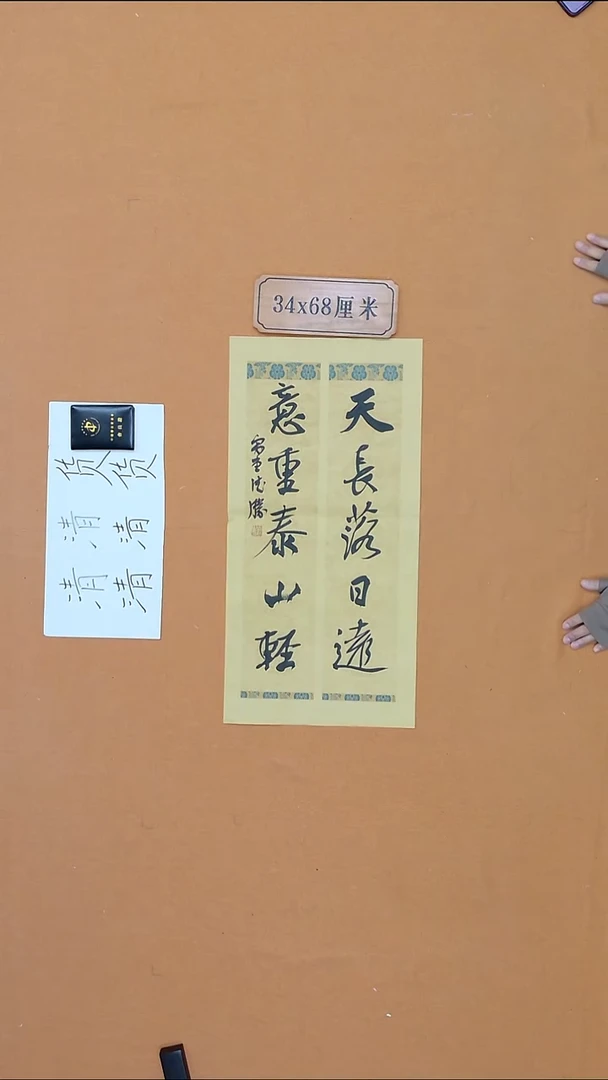 34x68厘米
天長落日遠
意重泰山輕
货货
清清
清清